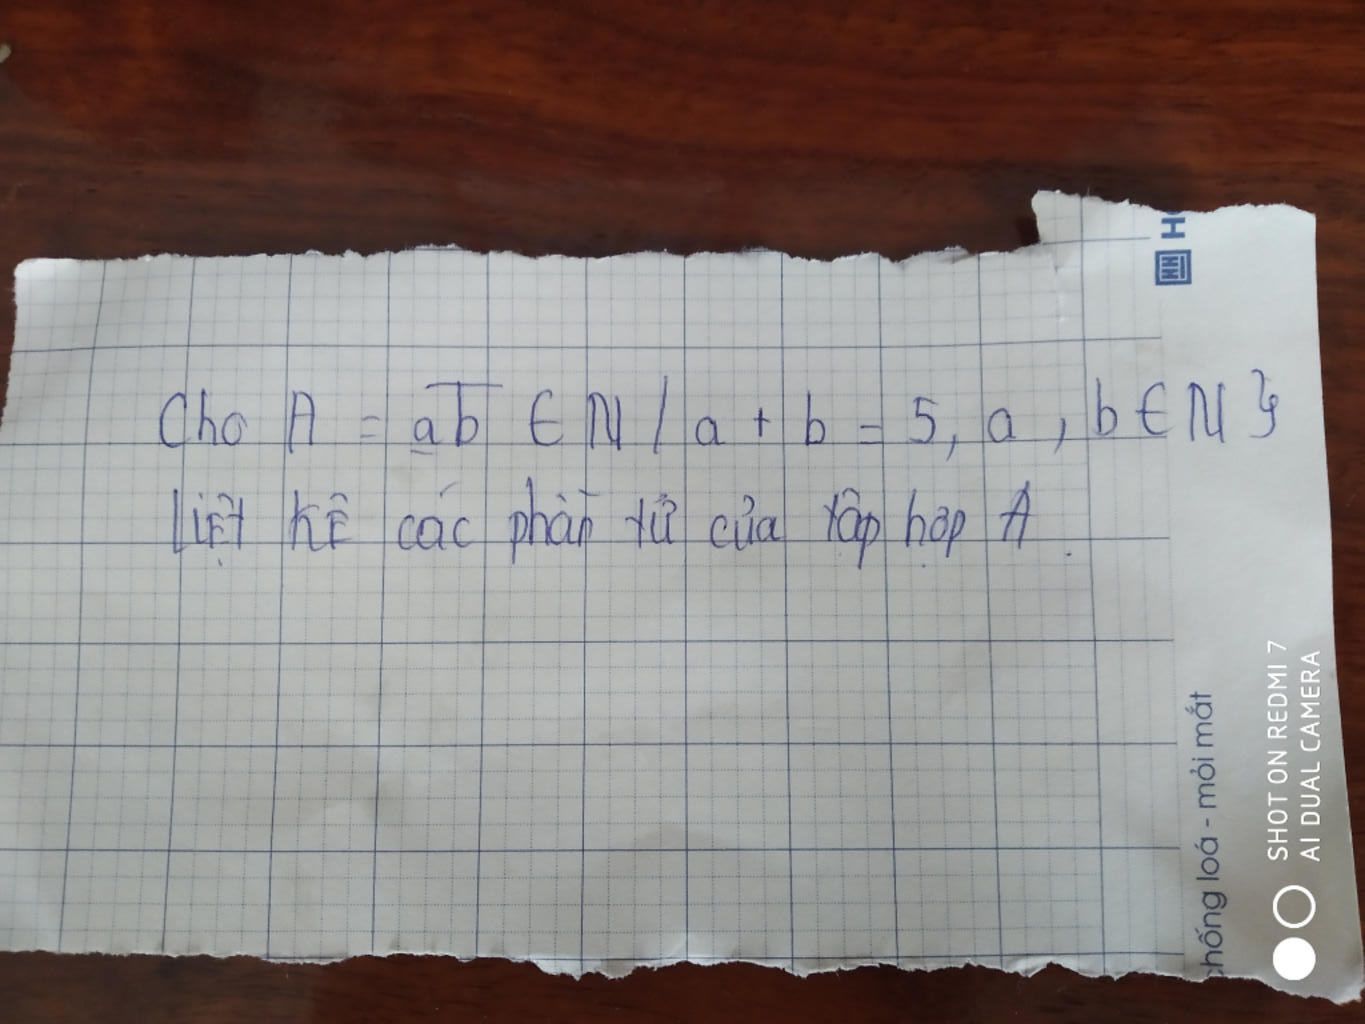 Cho A = ab ∈ N / a + b = 5, a, b ∈ N }
Liệt kê các phần tử của tập hợp A.
chống loá - mỏi mắt
SHOT ON REDMI 7
AI DUAL CAMERA